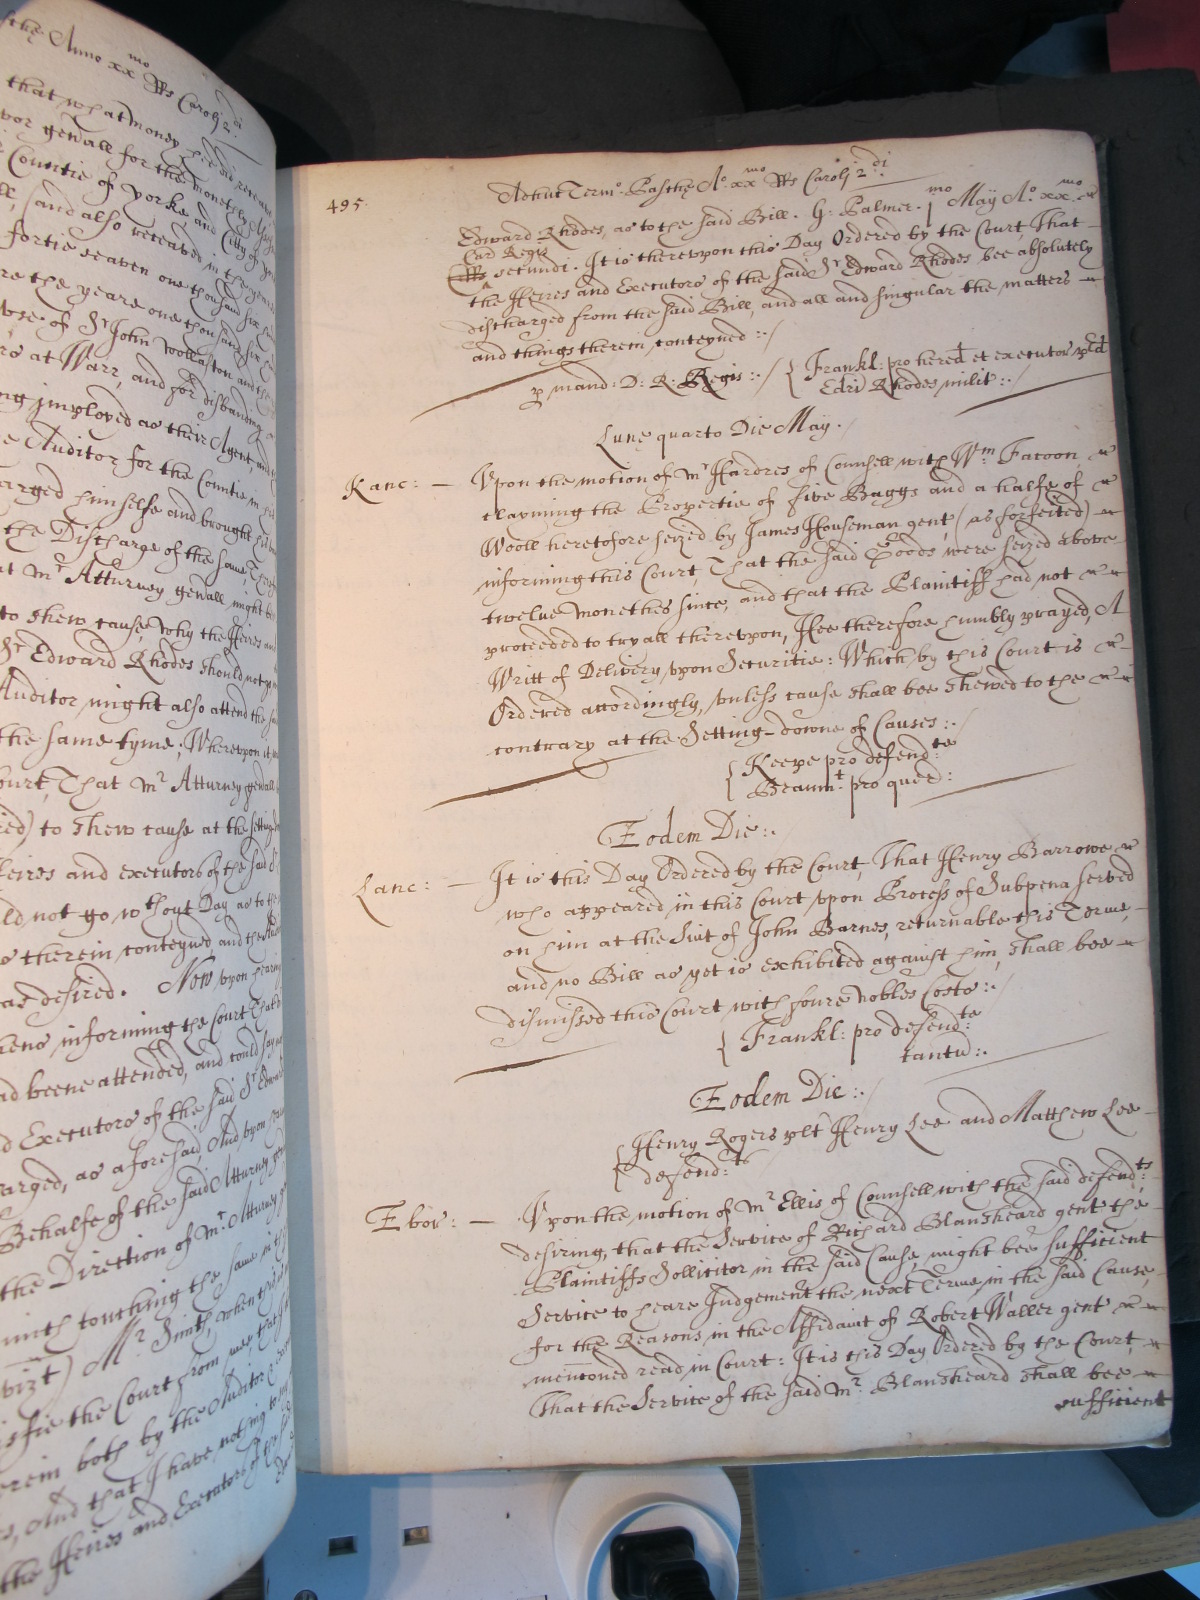 sche Anno xx mo Rs Carolj 2 di
that what money hee did receive
vor gen̄all for the monethly
Countie of Yorke and Citty of
ll, (and also received in the yeares
fortie seaven one thousand six
re the yeare one thousand six
wse of Sr John Wollaston and the
rs at Warr, and for disbanding
ng imployed as their Agent, and
e Auditor for the Countie
arged himselfe and brought his
the Discharge of the same, That
at Mr Atturney gen̄all might
to shew cause, why the Heires and
Sr Edward Rhodes should not go
Auditor might also attend the
the same tyme; Wherevpon it
ourt, That Mr Atturney gen̄all
ed) to shew cause at the setting
eires and executors of the said Sr
ld not go wthout Day as to the
s therein conteyned, and the
as desired. Now vpon hearing
iens informing the Court That
ad beene attended, and could say
d Executors of the said Sr Edward
arged, as aforesaid, And vpon
Behalfe of the said Atturney
the Direction of Mr Atturney
mith touching the same
vizt) Mr Smith, when
isfie the Court from me, that
erein both by the Auditor
s, And that I have nothing to
the Heires and Executors of the
495.
Adhuc Termo. Pasche Ao. xx mo Rs Carolj 2 di
Edward Rhodes, as to the said Bill. G: Palmer. | mo May Ao. xx mo
Car Regis
Rs secundi. It is therevpon this Day Ordered by the Court, That
the Heires and Executors of the said Sr Edward Rhodes bee absolutely
discharged from the said Bill, and all and singular the matters
and things therein conteyned :./
p mand: D: R: Regis :./ { Frankl: pro hered et executor pred
Edri Rhodes milit :./
Lune quarto Die May./
Kanc: — Vpon the motion of Mr Hardres of Counsell with Wm Facoon
clayming the Propertie of five Baggs and a halfe of
Wooll heretofore seized by James Houseman gent (as forfeited)
informing this Court, That the said Goods were seized above
twelve monethes since, and that the Plaintiff had not
proceeded to tryall therevpon, Hee therefore humbly prayed, A
Writt of Delivery vpon Securitie: Which by this Court is
Ordered accordingly, vnless cause shall bee shewed to the
contrary at the Setting-downe of Causes :./
{ Keepe pro defend:te
Beaumt: pro quer:
Eodem Die :./
Lanc: — It is this Day Ordered by the Court, That Henry Barrowe
who appeared in this Court vpon Process of Subpena served
on him at the Suit of John Barnes, returnable this Terme,
and no Bill as yet is exhibited against him, shall bee
dismissed this Court with foure nobles Costs :./
{ Frankl: pro defend:te
tantu :.
Eodem Die :./
{ Henry Rogers plt Henry Lee and Matthew Lee
defend:ts
Ebor: — Vpon the motion of Mr Ellis of Counsell with the said defend:ts
desiring, that the Service of Richard Blansheard gent the
Plaintiffs Sollicitor in the said Cause, might bee sufficient
Service to heare Judgement the next Terme, in the said Cause,
for the Reasons in the Affidavit of Robert Waller gent
menc̄oned read in Court: It is this Day Ordered by the Court,
That the Service of the said Mr. Blansheard shall bee
sufficient